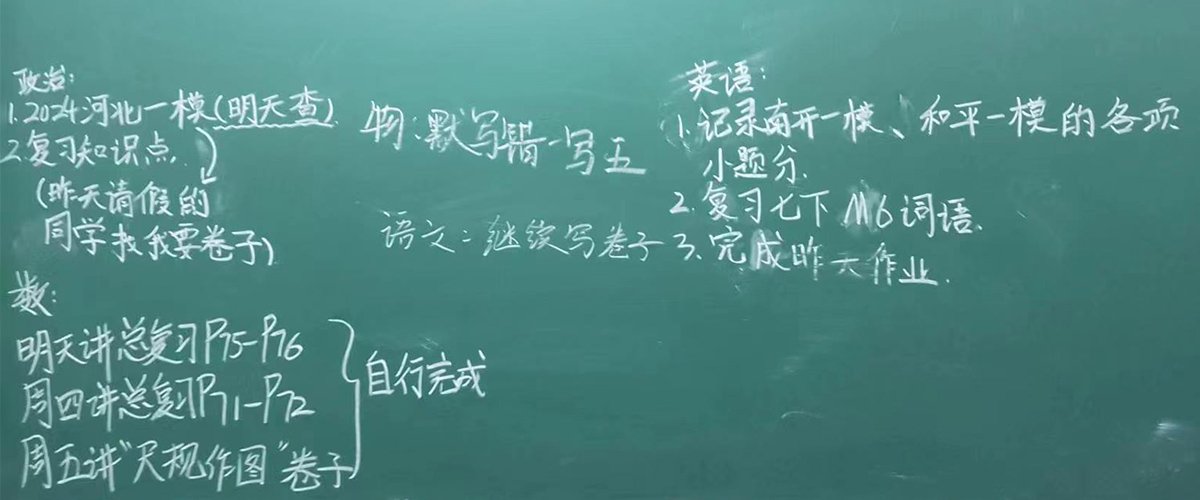 政治:
1.2024河北一模(明天查)
2.复习知识点.
(昨天请假的
同学找我要卷子)
数:
明天讲总复习P75-P76
周四讲总复习P71-P72
周五讲"尺规作图"卷子
自行完成
物:默写错一写五
语文:继续写卷子
英语:
1.记录南开一模、和平一模的各项
小题分.
2.复习七下M6词语.
3.完成昨天作业.